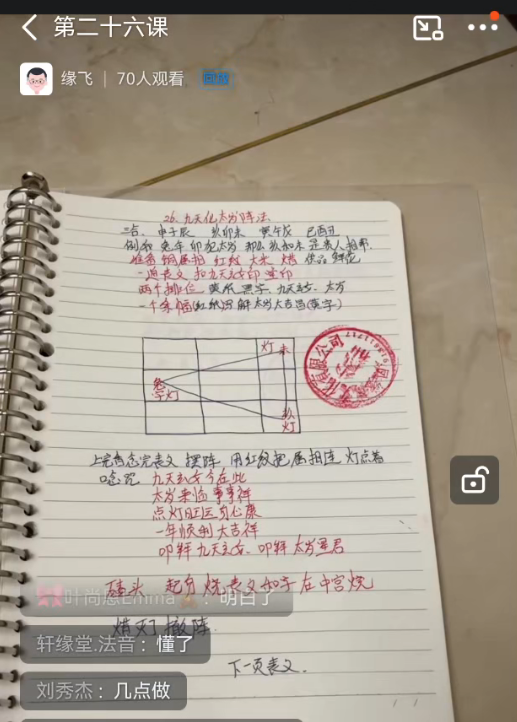 第二十六课
缘飞 | 70人观看 回放
26. 九天化太岁阵法
三合. 申子辰 亥卯未 寅午戌 巳酉丑
例如 兔年 卯犯太岁 那么亥和未 是贵人相帮
准备 铜属相 红纱 大米 烛 供品 鲜花
一通表文 扣九天玄女印 道印
两个排位 黄纸 黑字. 九天玄女. 太岁
一个条幅(红纸 解太岁大吉昌(黑字)
灯 未
兔字灯
亥灯
上完香念完表文 摆阵 用红纱把属相连 灯点着
口念咒 九天玄女今在此
太岁来临 事事祥
点灯旺运身心康
一年顺利 大吉祥
叩拜九天玄女. 叩拜 太岁星君
磕头 起身 烧表文和字 在中宫烧
叶尚恩Emma : 明白了
熄灯 撤阵.
轩缘堂.法音 : 懂了
下一页表文.
刘秀杰 : 几点做